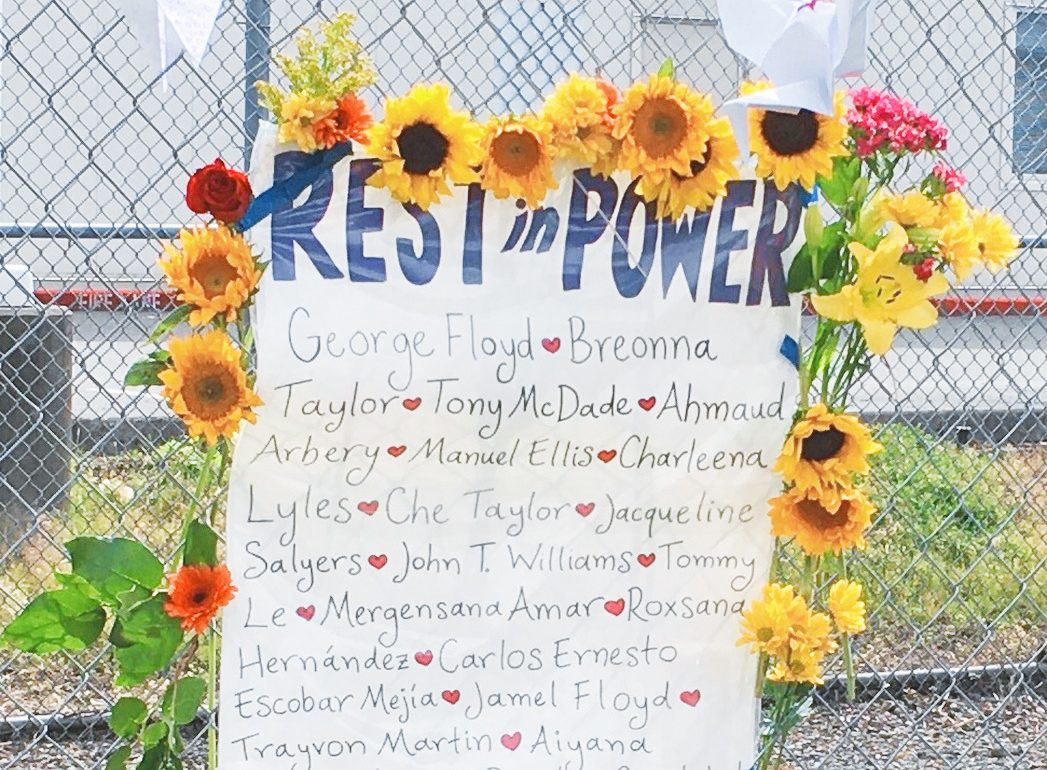 REST in POWER
George Floyd ♥ Breonna
Taylor ♥ Tony McDade ♥ Ahmaud
Arbery ♥ Manuel Ellis ♥ Charleena
Lyles ♥ Che Taylor ♥ Jacqueline
Salyers ♥ John T. Williams ♥ Tommy
Le ♥ Mergensana Amar ♥ Roxsana
Hernández ♥ Carlos Ernesto
Escobar Mejía ♥ Jamel Floyd ♥
Trayvon Martin ♥ Aiyana
FIRE LANE